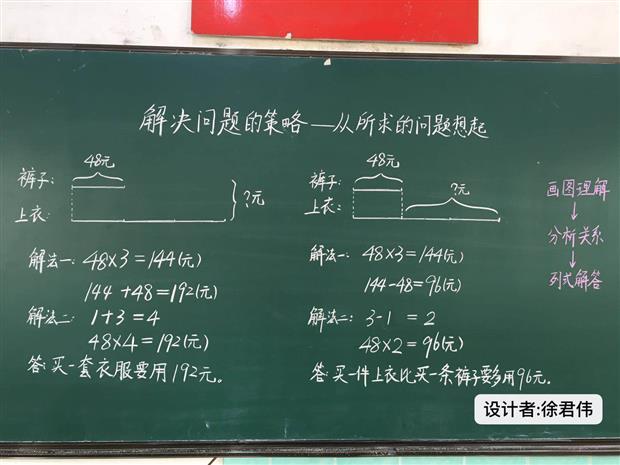 解决问题的策略—从所求的问题想起
48元
裤子:
上衣:
?元
解法一: 48×3=144(元)
144+48=192(元)
解法二: 1+3=4
48×4=192(元)
答:买一套衣服要用192元。
48元
裤子:
?元
上衣:
解法一: 48×3=144(元)
144-48=96(元)
解法二: 3-1=2
48×2=96(元)
答:买一件上衣比买一条裤子要多用96元。
画图理解
↓
分析关系
↓
列式解答
设计者:徐君伟